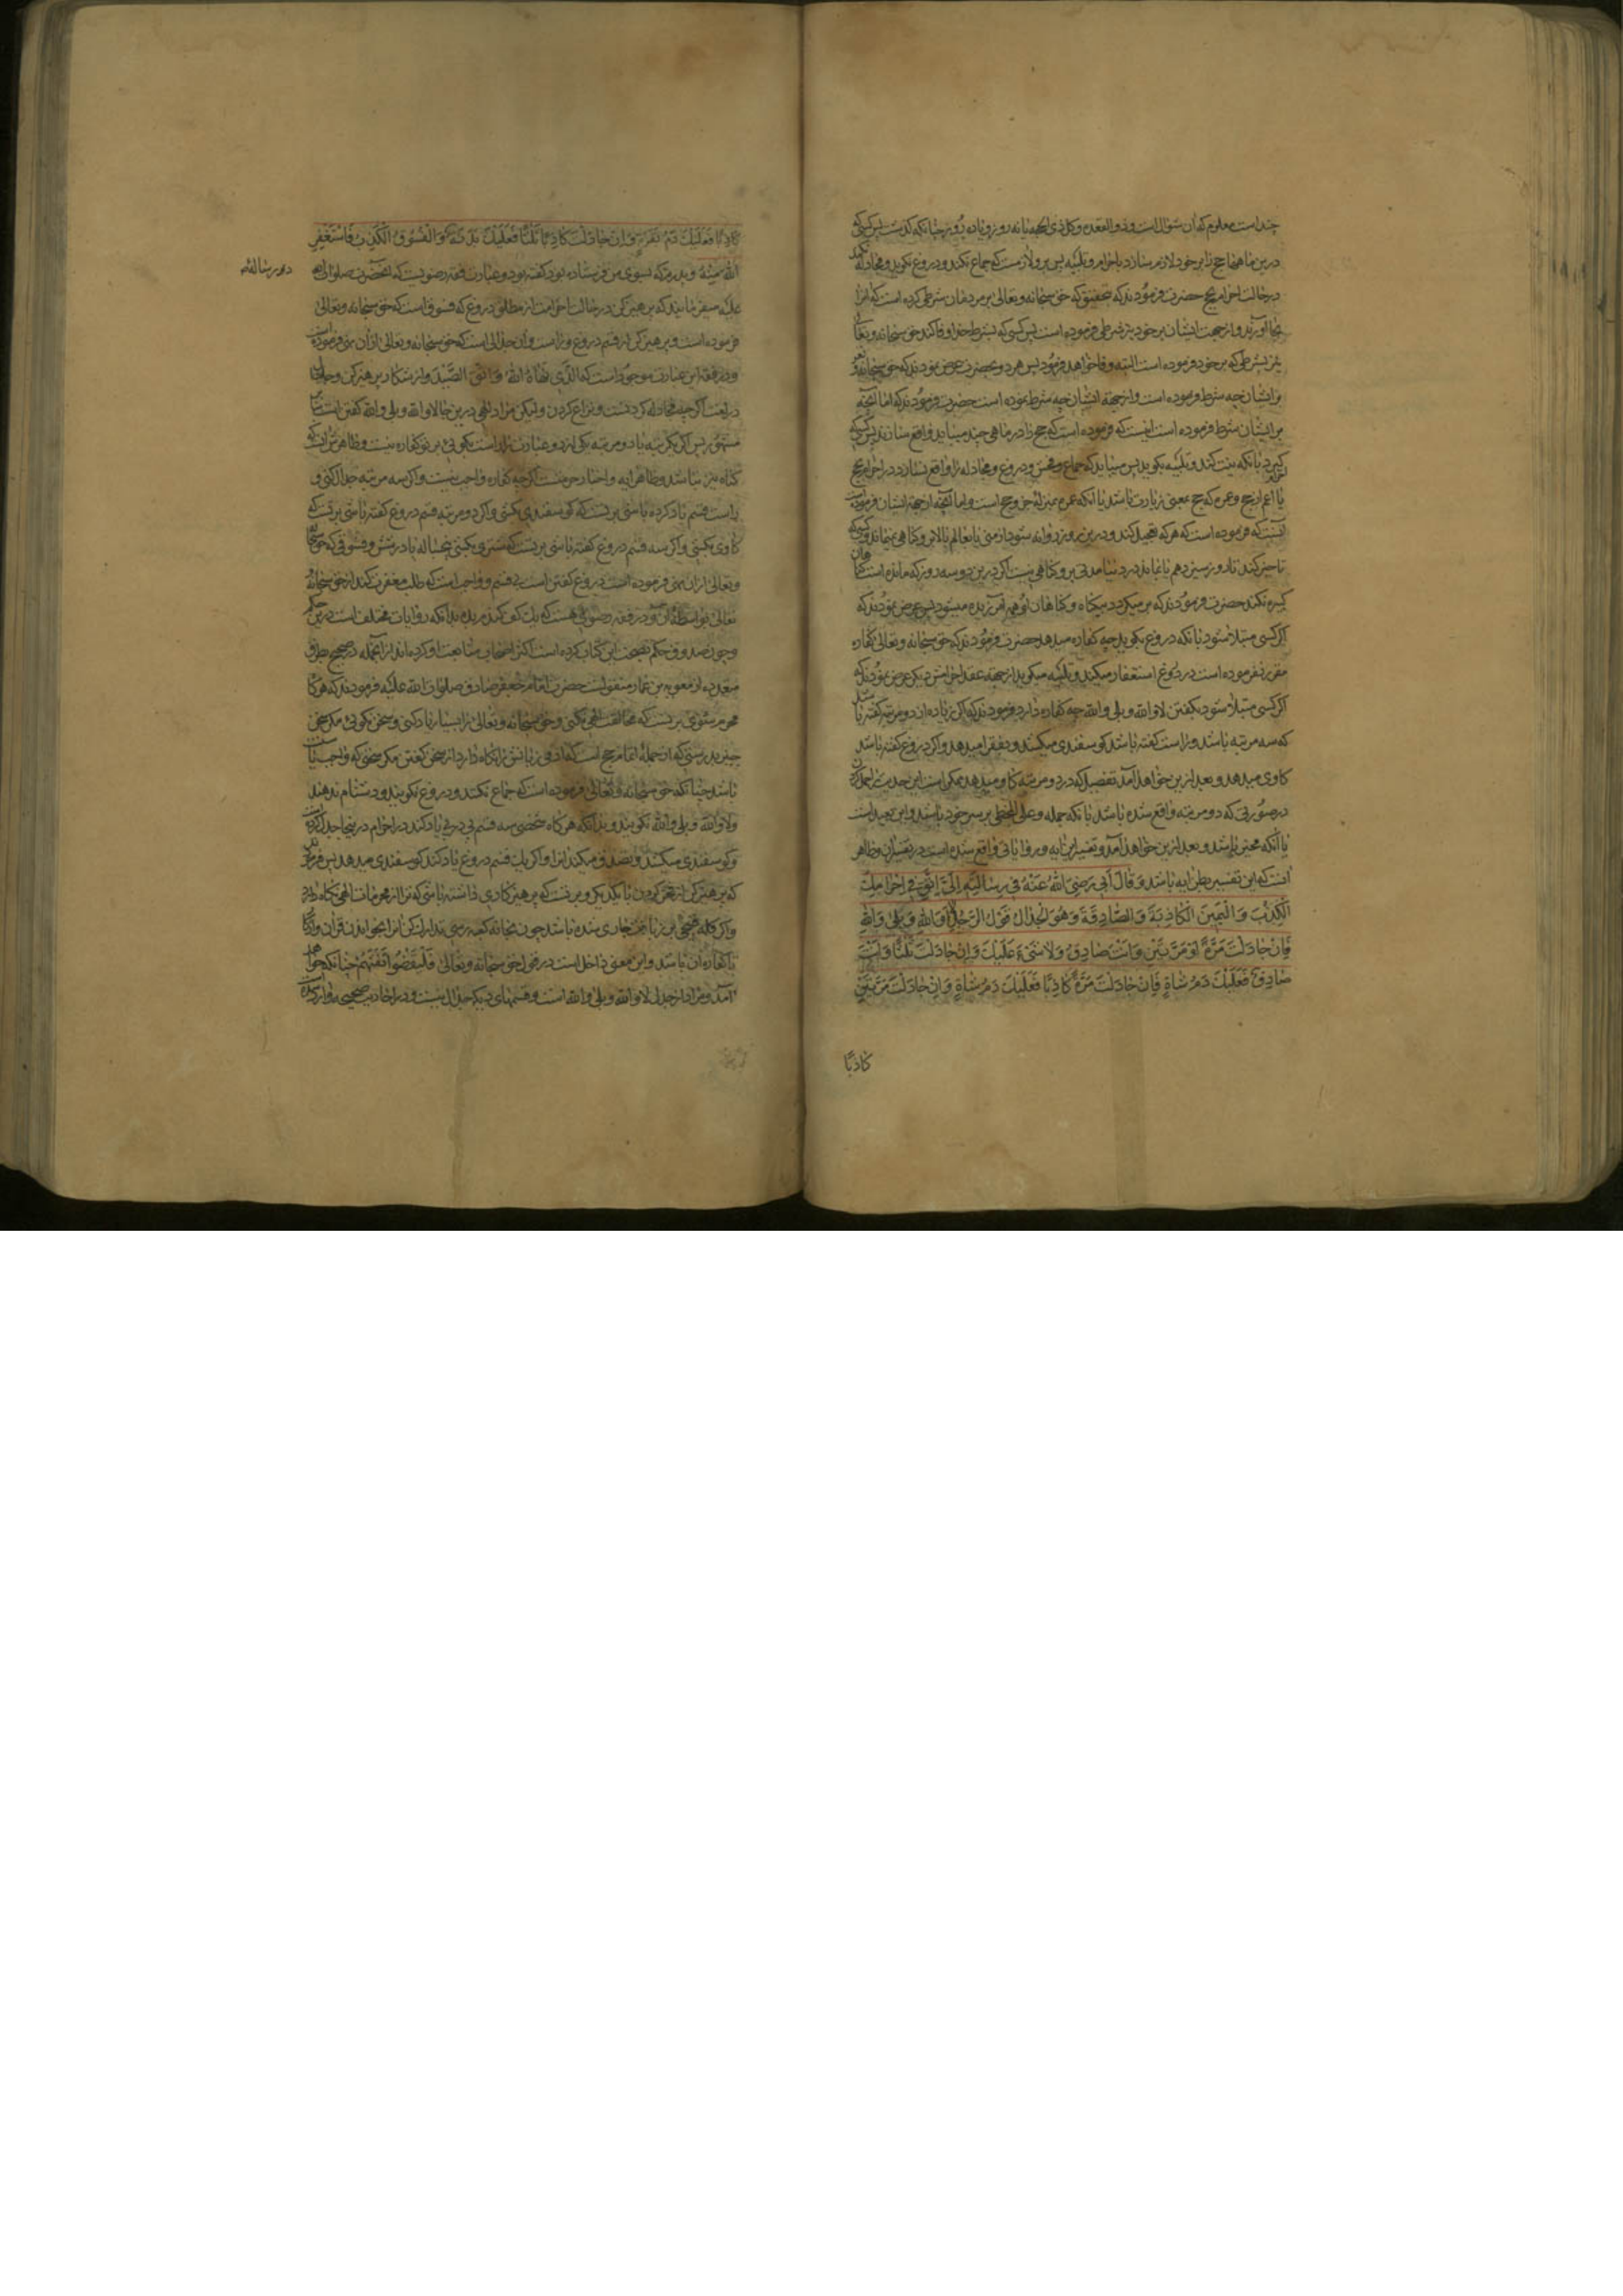 چند است معلوم که آن شوال است و ذو القعده و کل ذی الحجه یا نه روز و یا ده روز چنانکه گذشت پس کسی که
درین ماهها حج را بر خود لازم سازد باحرام و تلبیه پس برو لازمست که جماع نکند و دروغ نکوید و مجادله نکند
در حالت احرام بحج حضرت فرمودند که بتحقیق که حق سبحانه و تعالی بر مردمان شرطی کرده است که آنرا
بجا آورند و از جهت ایشان بر خود نیز شرطی فرموده است پس کسی که بشرط خدا وفا کند حق سبحانه و تعالی
نیز بشرطی که بر خود فرموده است البته وفا خواهد فرمود پس هر دو بحضرت عرض نمودند که حق سبحانه و تعالی
بر ایشان چه شرط فرموده است و از جهة ایشان چه شرط نموده است حضرت فرمودند که اما آنچه
بر ایشان شرط فرموده است اینست که فرموده است که حج را در ماهی چند میباید واقع سازند پس کسی که
بکیرد بآنکه نیت کند و تلبیه بکوید پس میباید که جماع و فحش و دروغ و مجادله را واقع نسازد در احرام بحج
یا اعم از حج و عمره که حج بمعنی زیارت باشد یا آنکه عمره بمنزله جزو حج است و اما آنچه از جهة ایشان فرموده است
آنست که فرموده است که هر که تعجیل کند و درین دو روز روانه شود از منی یا بعالم بالا برو کناهی نمیماند و کسی که
تاخیر کند تا روز سیزدهم یا بماند در دنیا مدتی برو کناهی نیست اکر درین دو سه روز که مانده است کناهان
کبیره نکند حضرت فرمودند که بر میکردد بیکناه و کناهان او همه آمرزیده میشود پس عرض نمودند که
اکر کسی مبتلا شود بآنکه دروغ بکوید چه کفاره میدهد حضرت فرمودند که حق سبحانه و تعالی کفاره
مقرر نفرموده است در دروغ استغفار میکند و تلبیه میکوید از جهة عقد احرامش دیکر عرض نمودند که
اکر کسی مبتلا شود بکفتن لا و الله و بلی و الله چه کفاره دارد فرمودند که اکر زیاده از دو مرتبه کفته باشد
که سه مرتبه باشد و راست کفته باشد کوسفندی میکشد و بفقرا میدهد و اکر دروغ کفته باشد
کاوی میدهد و بعد ازین خواهد آمد تفصیل که در دو مرتبه کاو میدهد ممکن است این حدیث را حمل کردن
در صورتی که دو مرتبه واقع شده باشد بآنکه جمله و علی المخطی بر سر خود باشد و این بعید است
یا آنکه مخیر باشد و بعد ازین خواهد آمد و تفسیر این آیه و روایاتی واقع شده است در تفسیر آن و ظاهر
آنست که این تفسیر بطن آیه باشد وَقَالَ أَبِي رَضِيَ اللهُ عَنْهُ فِي رِسَالَتِهِ إِلَيَّ اتَّقِ فِي إِحْرَامِكَ
الْكَذِبَ وَالْيَمِينَ الْكَاذِبَةَ وَالصَّادِقَةَ وَهُوَ الْجِدَالُ قَوْلُ الرَّجُلِ لَا وَاللهِ وَبَلَى وَاللهِ
فَإِنْ جَادَلْتَ مَرَّةً أَوْ مَرَّتَيْنِ وَأَنْتَ صَادِقٌ وَلَا شَيْءَ عَلَيْكَ وَإِنْ جَادَلْتَ ثَلَثًا وَأَنْتَ
صَادِقٌ فَعَلَيْكَ دَمُ شَاةٍ فَإِنْ جَادَلْتَ مَرَّةً كَاذِبًا فَعَلَيْكَ دَمُ شَاةٍ وَإِنْ جَادَلْتَ مَرَّتَيْنِ
کاذبًا
كَاذِبًا فَعَلَيْكَ دَمُ بَقَرَةٍ وَإِنْ جَادَلْتَ كَاذِبًا ثَلَثًا فَعَلَيْكَ بَدَنَةٌ وَالْفُسُوقُ الْكَذِبُ فَاسْتَغْفِرِ
اللهَ مِنْهُ و پدرم که بسوی من فرستاده بود کفته بود و عبارت فقه رضویست که آنحضرت صلوات الله
علیه میفرمایند که پرهیز کن در حالت احرامت از مطلق دروغ که فسوق است که حق سبحانه و تعالی
فرموده است و پرهیز کن از قسم دروغ و راست و آن جدالی است که حق سبحانه و تعالی از آن نهی فرموده است
و در فقه این عبارت موجود است که الَّذِي نَهَاهُ اللهُ وَاتَّقِ الصَّيْدَ و از شکار پرهیز کن و جدال
در لغت اکر چه مجادله کردنست و نزاع کردن و لیکن مراد الهی درین جا لا و الله و بلی و الله کفتن است
پس اکر یکمرتبه یا دو مرتبه یکی ازین دو عبارت را راست بکوئی بر تو کفاره نیست و ظاهرش آنست که
کناه نیز نباشد و ظاهر آیه و اخبار حرمتست اکر چه کفاره واجب نیست و اکر سه مرتبه جدال کنی و
راست قسم یاد کرده باشی بر تست که کوسفندی بکشی و اکر دو مرتبه قسم دروغ کفته باشی بر تست که
کاوی بکشی و اکر سه قسم دروغ کفته باشی بر تست که شتری بکشی پنجساله پا در شش و فسوقی که حق سبحانه
و تعالی از آن نهی فرموده است دروغ کفتن است بی قسم و واجب است که طلب مغفرت کند از حق سبحانه و
تعالی و در فقه رضوی هست که یک کف کندم بده بدانکه روایات مختلف است درین حکم
و چون صدوق حکم بصحت این کتاب کرده است اکثر اصحاب متابعت او کرده‌اند از آنجمله در صحیح بطرق
متعدده از معویة بن عمار منقولست که حضرت امام جعفر صادق صلوات الله علیه فرمودند که هرکاه
محرم شوی بر تست که مخالفت الهی نکنی و حق سبحانه و تعالی را بسیار یاد کنی و سخن نکوئی مکر سخن
خیر بدرستی که از جمله اتمام حج است که آدمی زبانش را نکاه دارد از سخن کفتن مکر سخنی که واجب یا سنت
باشد چنانکه حق سبحانه و تعالی فرموده است که جماع نکنند و دروغ نکویند و دشنام ندهند
و لا و الله و بلی و الله نکویند و بدانکه هرکاه شخصی سه قسم پی در پی یاد کند در احرام درینجا جدال کرده است
و کوسفندی میکشد و تصدق میکند آنرا و اکر یک قسم دروغ یاد کند کوسفندی میدهد پس فرمودند
که پرهیز کن از فخر کردن با یکدیکر و بر تست که پرهیزکاری داشته باشی که ترا از محرمات الهی نکاه دارد
و اکر کلمه قبیحی بر زبانت جاری شده باشد چون بخانه کعبه رسی تدارک کن آنرا بخواندن قرآن و ذکر
تا کفاره آن باشد و این معنی داخل است در قول حق سبحانه و تعالی فَلْيَقْضُوا تَفَثَهُمْ چنانکه خواهد
آمد و مراد از جدال لا و الله و بلی و الله است و قسمهای دیکر جدال نیست و در احادیث صحیحه وارد شده